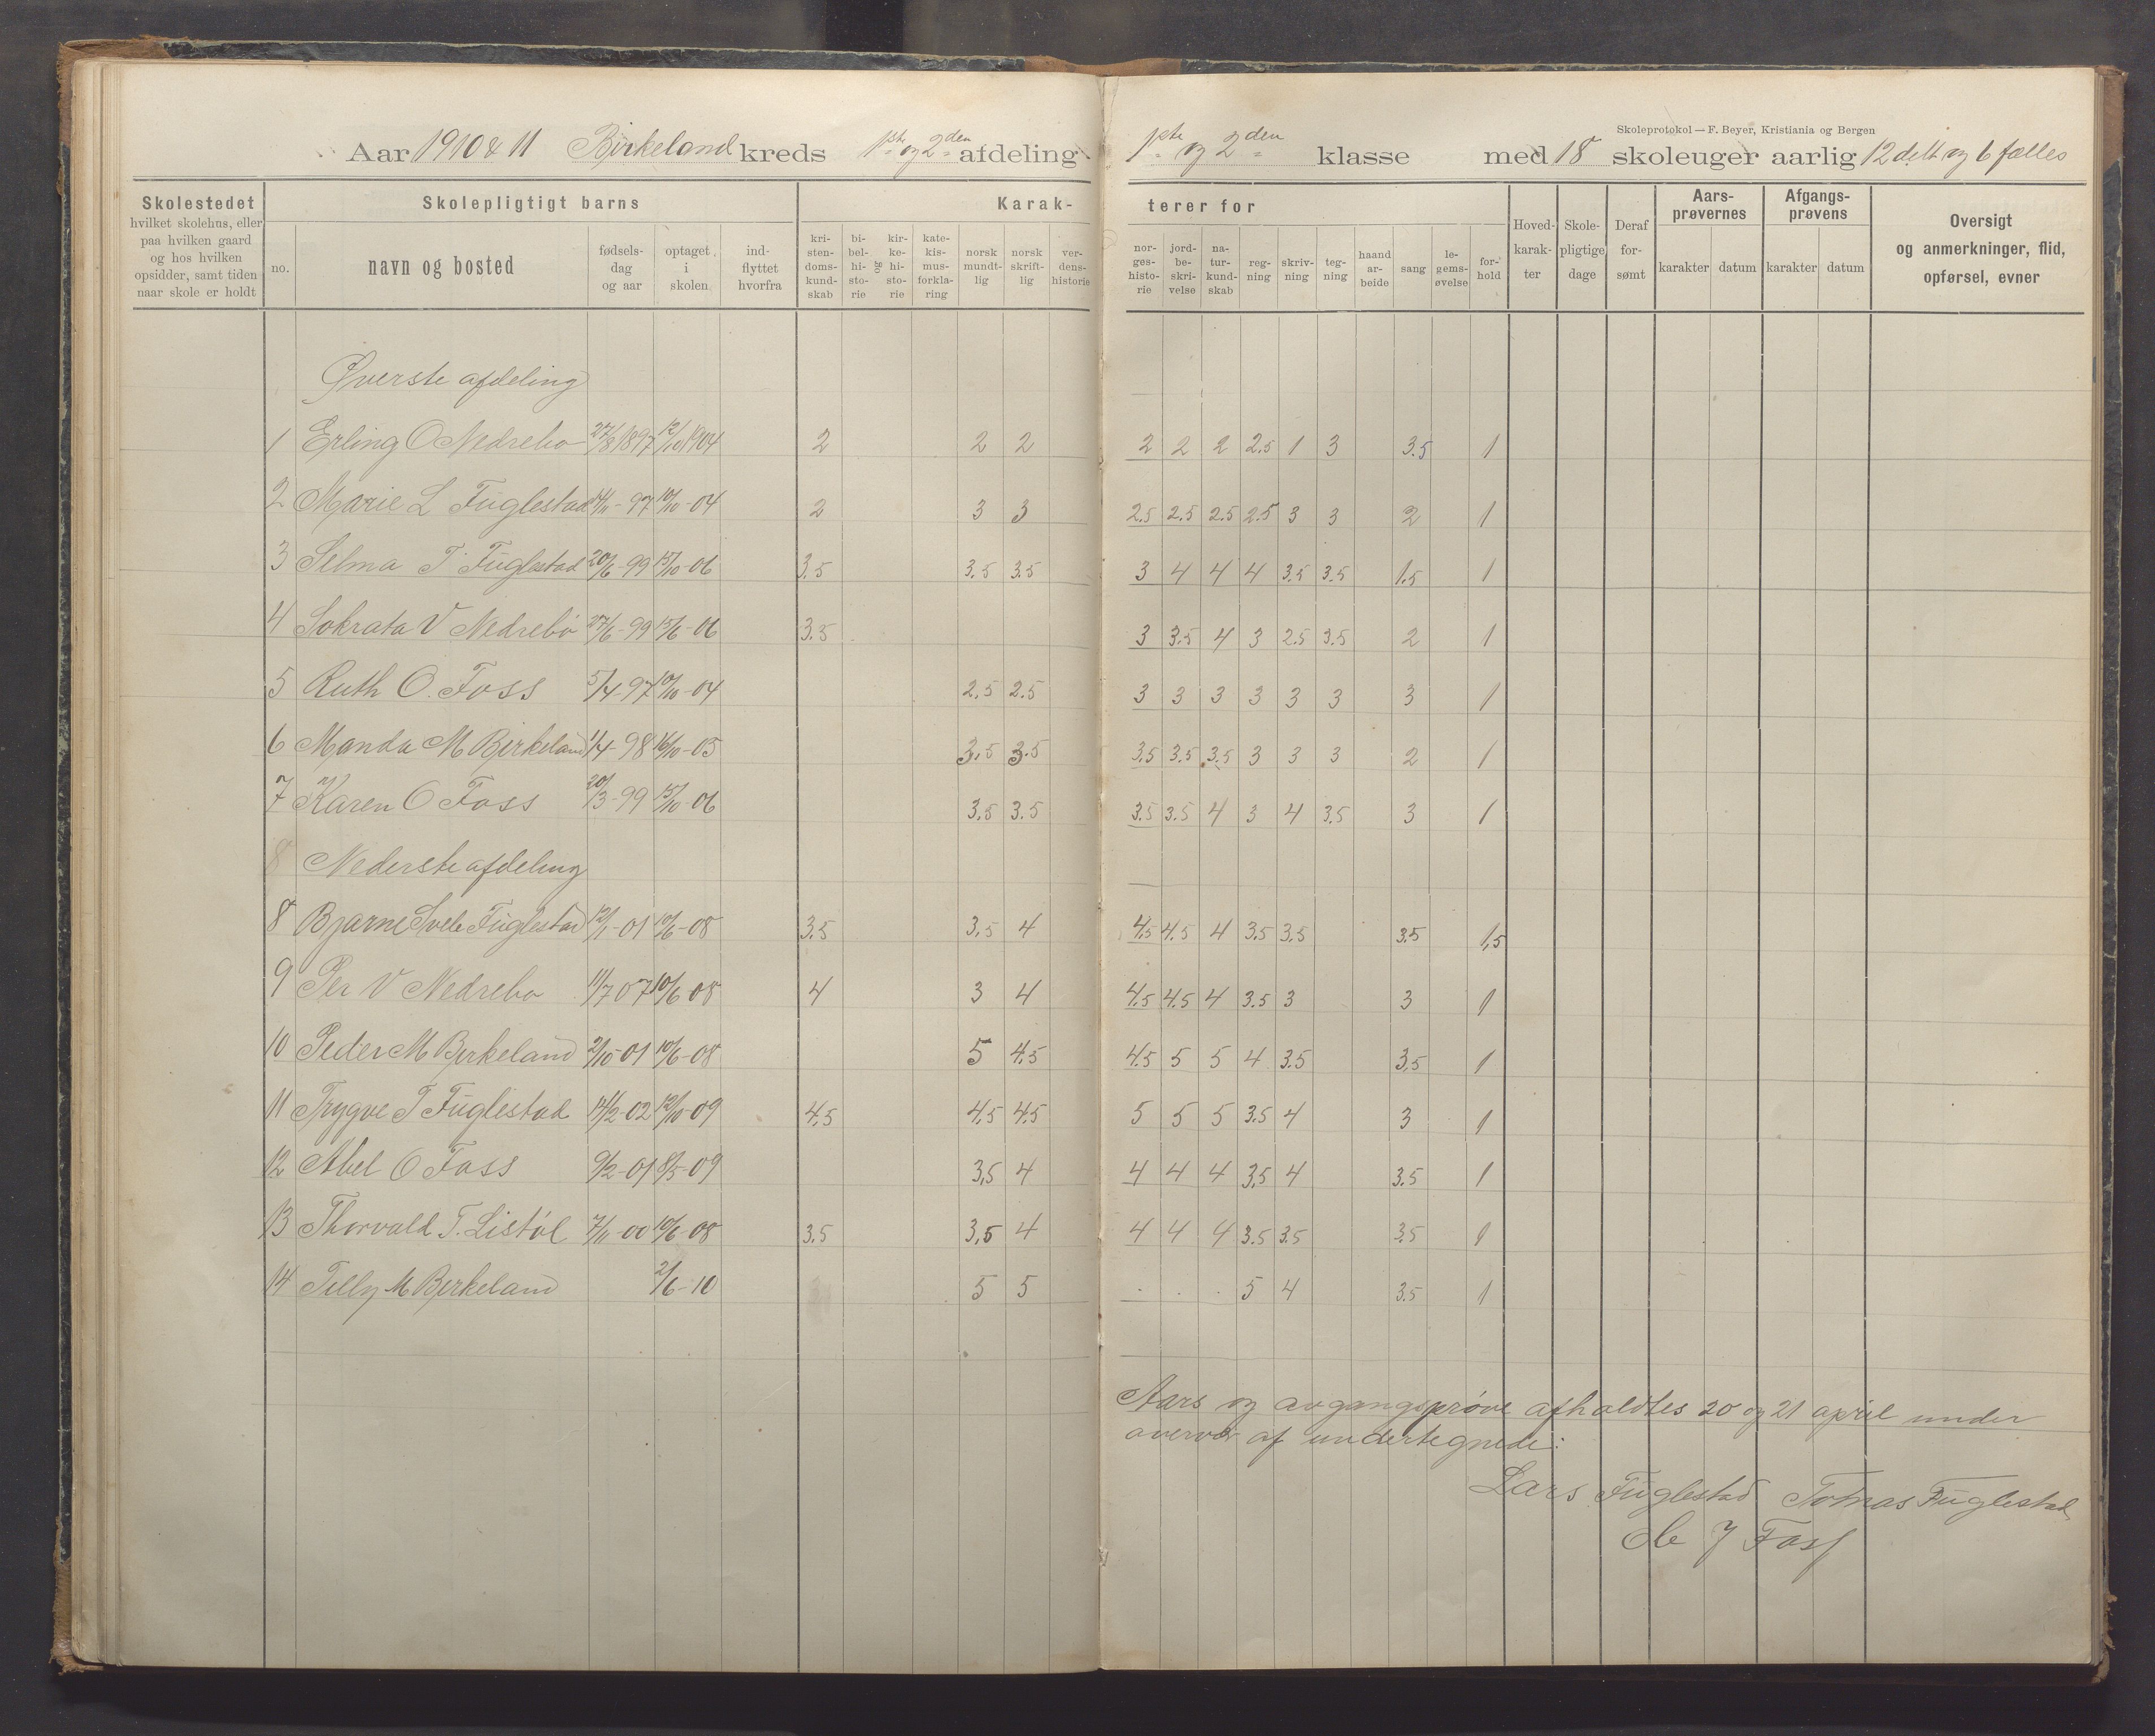 Skoleprotokol — F. Beyer, Kristiania og Bergen
Aar 1910 & 11 Birkeland kreds 1ste og 2den afdeling. 1ste og 2den klasse med 18 skoleuger aarlig 12 delt og 6 fælles
Skolestedet
hvilket skolehus, eller
paa hvilken gaard
og hos hvilken
opsidder, samt tiden
naar skole er holdt
Skolepligtigt barns
no.
navn og bosted
fødsels-
dag
og aar
optaget
i
skolen
ind-
flyttet
hvorfra
Karak-
kri-
sten-
doms-
kund-
skab
bi-
bel-
hi-
sto-
rie
og
kir-
ke-
hi-
sto-
rie
kate-
kis-
mus-
forkla-
ring
norsk
mundt-
lig
norsk
skrift-
lig
ver-
dens-
historie
terer for
nor-
ges-
histo-
rie
jord-
be-
skri-
velse
na-
tur-
kund-
skab
reg-
ning
skriv-
ning
teg-
ning
haand
ar-
beide
sang
le-
gems-
øvelse
for-
hold
Hoved-
karak-
ter
Skole-
pligtige
dage
Deraf
for-
sømt
Aars-
prøvernes
karakter datum
Afgangs-
prøvens
karakter datum
Oversigt
og anmerkninger, flid,
opførsel, evner
Øverste afdeling
1 Erling O Nedrebø 27/8 1897 12/10 1904 2 2 2 2 2 2 2.5 1 3 3.5 1
2 Marie L Fuglestad 14/11-97 10/10-04 2 3 3 2.5 2.5 2.5 2.5 3 3 2 1
3 Selma T Fuglestad 20/6-99 15/10-06 3.5 3.5 3.5 3 4 4 4 3.5 3.5 1.5 1
4 Sokrata V Nedrebø 27/6-99 15/6-06 3.5 3 3.5 4 3 2.5 3.5 2 1
5 Ruth O. Foss 5/4-97 10/10-04 2.5 2.5 3 3 3 3 3 3 3 1
6 Manda M Birkeland 1/4-98 16/10-05 3.5 3.5 3.5 3.5 3.5 3 3 3 2 1
7 Karen O Foss 20/3-99 15/10-06 3.5 3.5 3.5 3.5 4 3 4 3.5 3 1
8 Nederste afdeling
8 Bjarne Svele Fuglestad 12/1-01 10/6-08 3.5 3.5 4 4.5 4.5 4 3.5 3.5 3.5 1,5
9 Per V Nedrebø 11/7 07 10/6-08 4 3 4 4.5 4.5 4 3.5 3 3 1
10 Peder M Birkeland 2/10-01 10/6-08 5 4.5 4.5 5 5 4 3.5 3,5 1
11 Trygve T Fuglestad 14/2-02 12/10-09 4,5 4,5 4.5 5 5 5 3.5 4 3 1
12 Abel O Foss 9/2-01 8/5-09 3,5 4 4 4 4 3,5 4 3.5 1
13 Thorvald T. Listøl 7/11-00 10/6-08 3.5 3,5 4 4 4 4 3.5 3.5 3.5 1
14 Tilly M Birkeland 2/6-10 5 5 . . . 5 4 3.5 1
Aars og avgangsprøve afholdtes 20 og 21 april under
overvær af undertegnede:
Lars Fuglestad Tomas Fuglestad
Ole J Foss